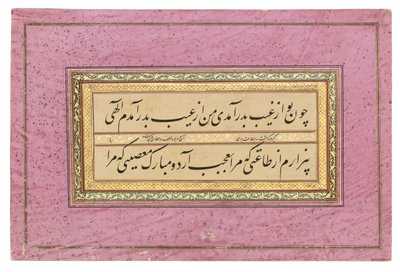 چون تو از غیب بدر آمدی من از عیب بدر آمدم الهی
بیزارم از طاعتی که مرا بعجب آرد و مبارک معصیتی که مرا